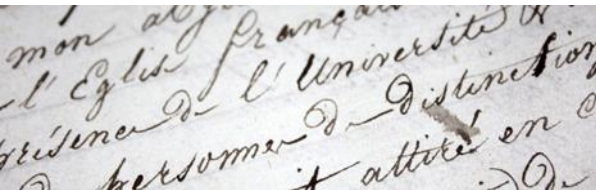 mon
l'Eglise français
présence de l'Université
personnes de Distinction
attiré en
de